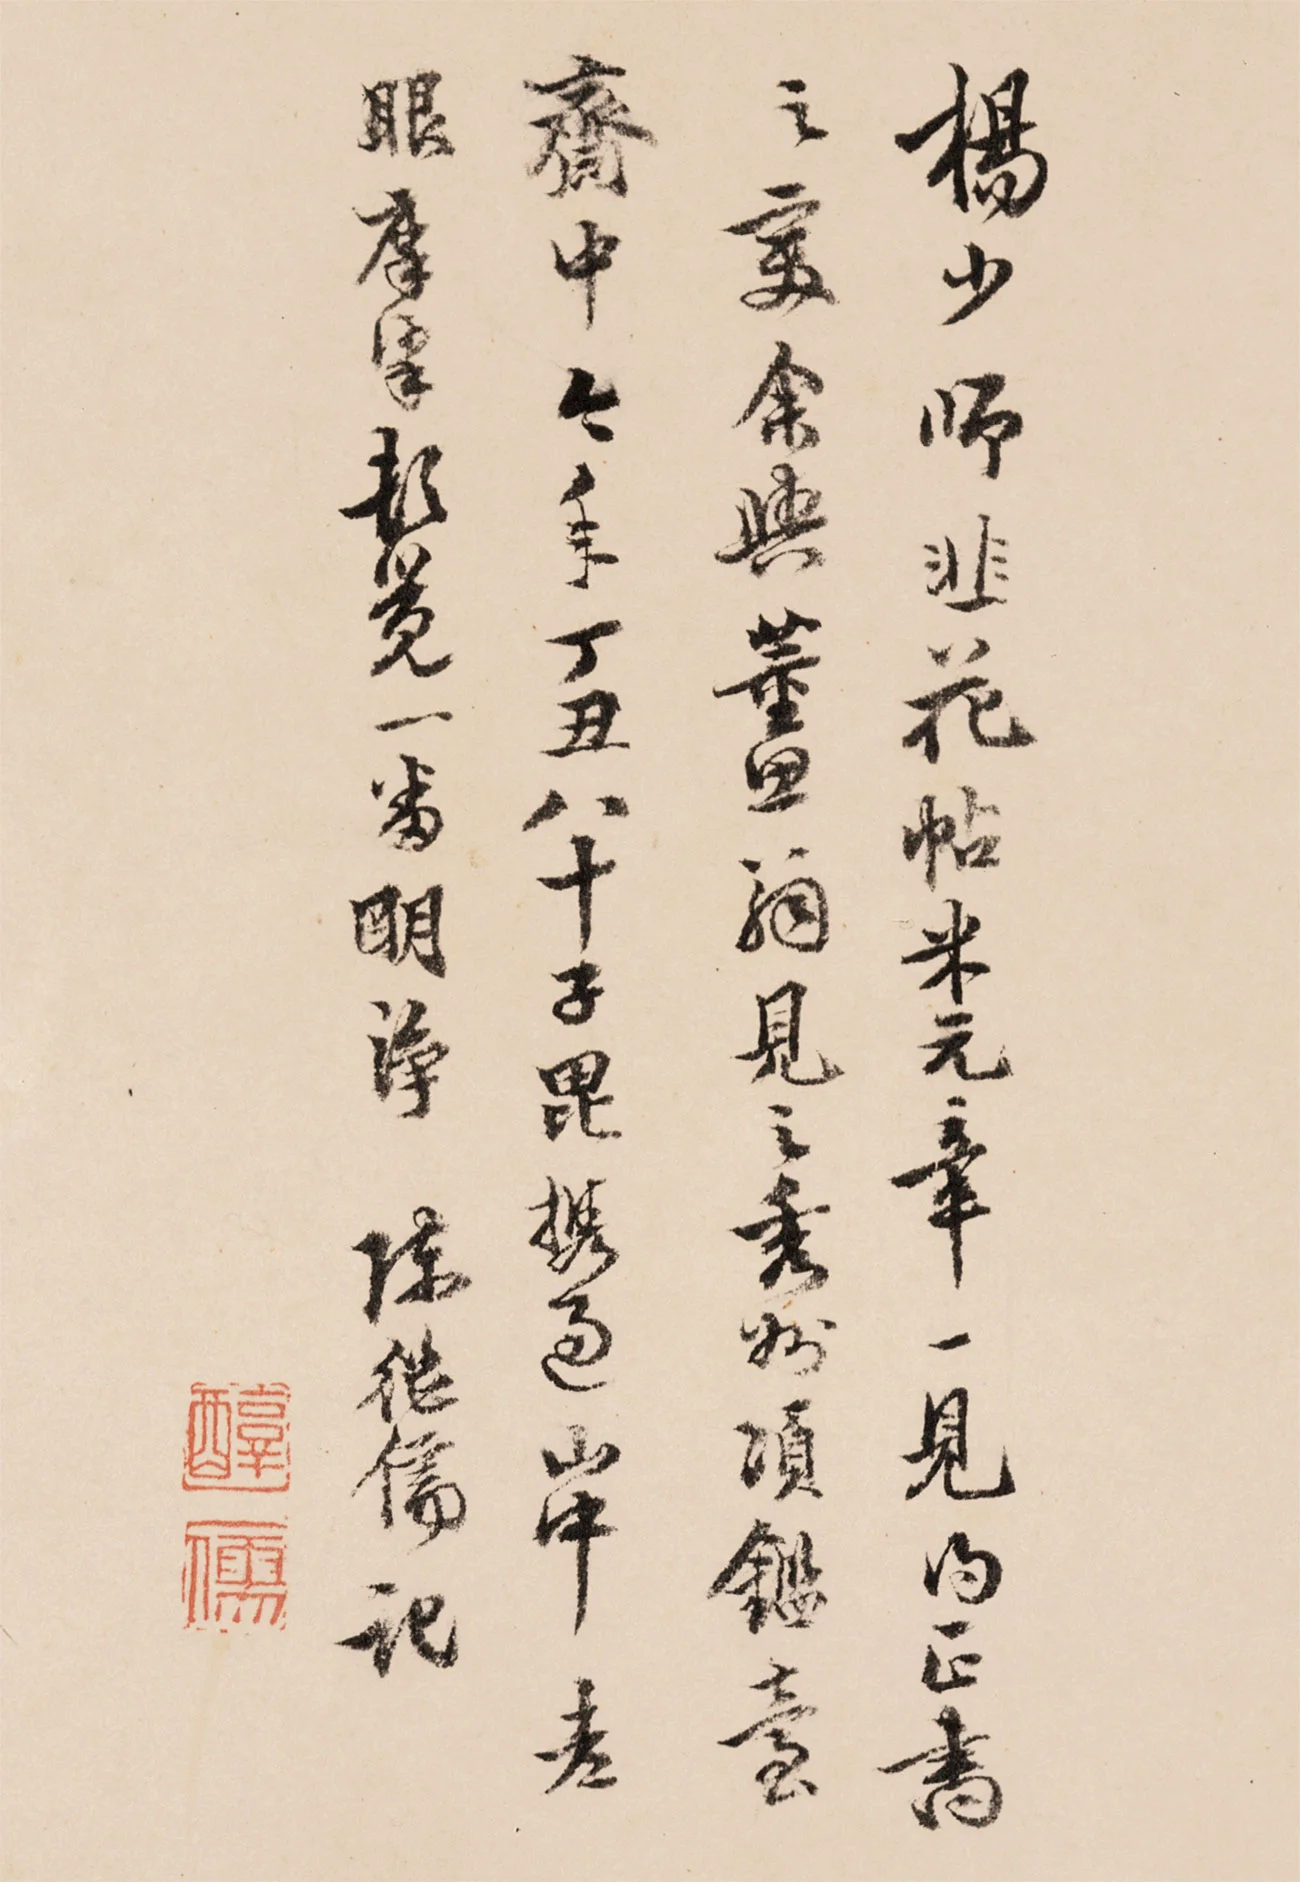 楊少師韭花帖米元章一見為正書
之變余與董思翁見之秀州項鑑臺
齋中今年丁丑八十子毘携過山中老
眼摩挲頓覺一番明淨 陳繼儒記
醇
儒